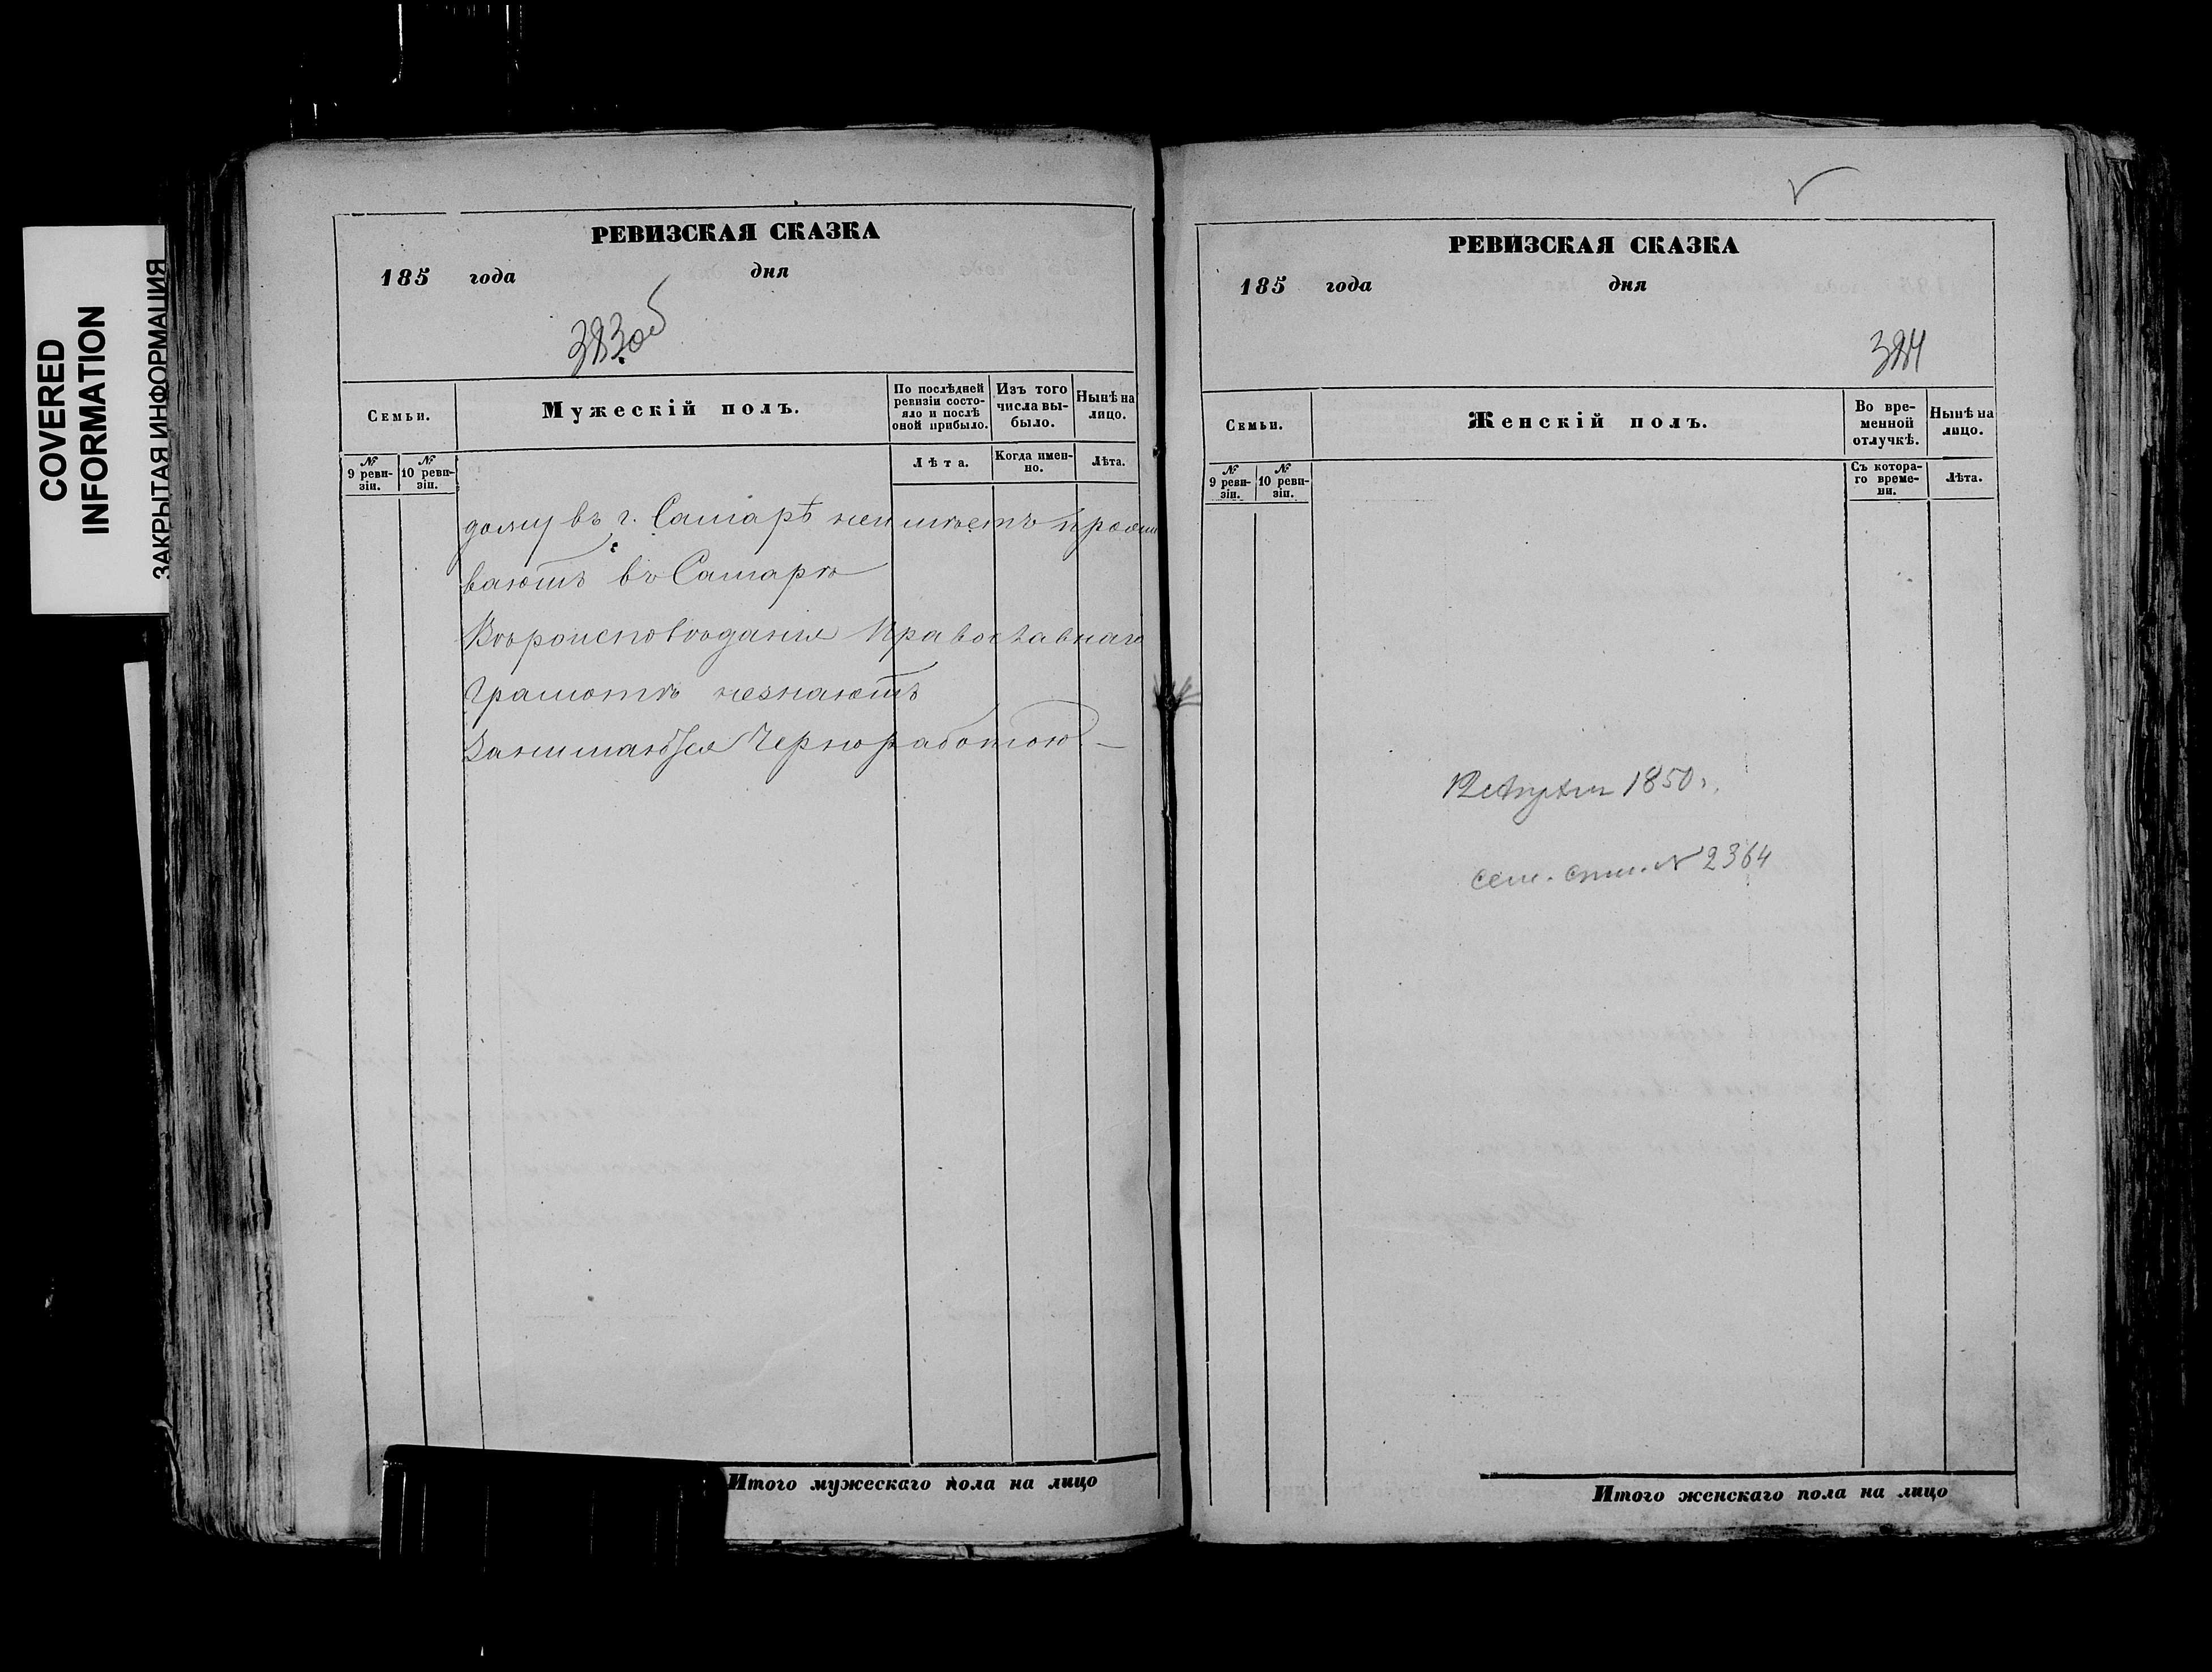 COVERED
INFORMATION
ЗАКРЫТАЯ ИНФОРМАЦИЯ
РЕВИЗСКАЯ СКАЗКА
185 года дня
383об
Семьи.
Мужескій полъ.
По послѣдней
ревизіи состо-
яло и послѣ
оной прибыло.
Изъ того
числа вы-
было.
Нынѣ на
лицо.
№
9 реви-
зіи.
№
10 реви-
зіи.
Лѣта.
Когда имен-
но.
Лѣта.
дому въ г. Самарѣ неимѣетъ прожи
ваютъ въ Самарѣ
Вѣроисповѣданія Православнаго
Грамотѣ незнаютъ
Занимаются Чернорабо­тою
Итого мужескаго пола на лицо
РЕВИЗСКАЯ СКАЗКА
185 года дня
384
Семьи.
Женскій полъ.
Во вре-
менной
отлучкѣ.
Нынѣ на
лицо.
№
9 реви-
зіи.
№
10 реви-
зіи.
Съ котора-
го време-
ни.
Лѣта.
1850г.
сем. спис. № 2364
Итого женскаго пола на лицо